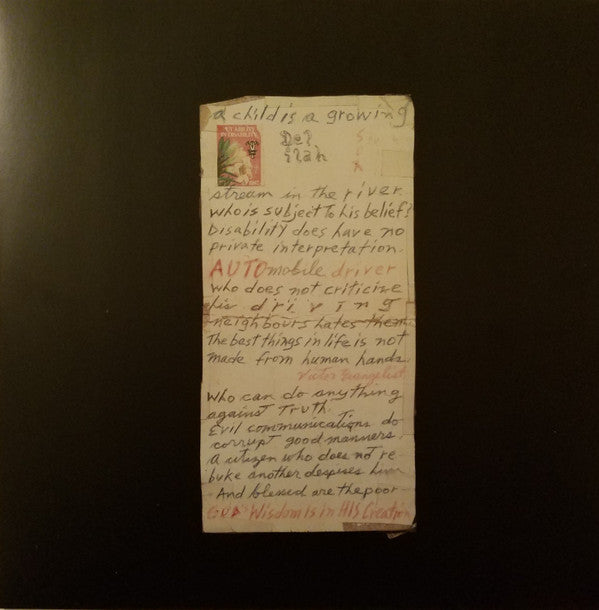 a child is a growing
ABILITY
IN DISABILITY
Del
ilah
stream in the river
who is subject to his belief?
Disability does have no
private interpretation.
AUTOmobile driver
who does not criticize
his driving
neighbours hates them
The best things in life is not
made from human hands.
Victor Evangelist
Who can do anything
against Truth.
Evil communications do
corrupt good manners.
A citizen who does not re
buke another despises him
And blessed are the poor
GOD'S Wisdom is in HIS Creation